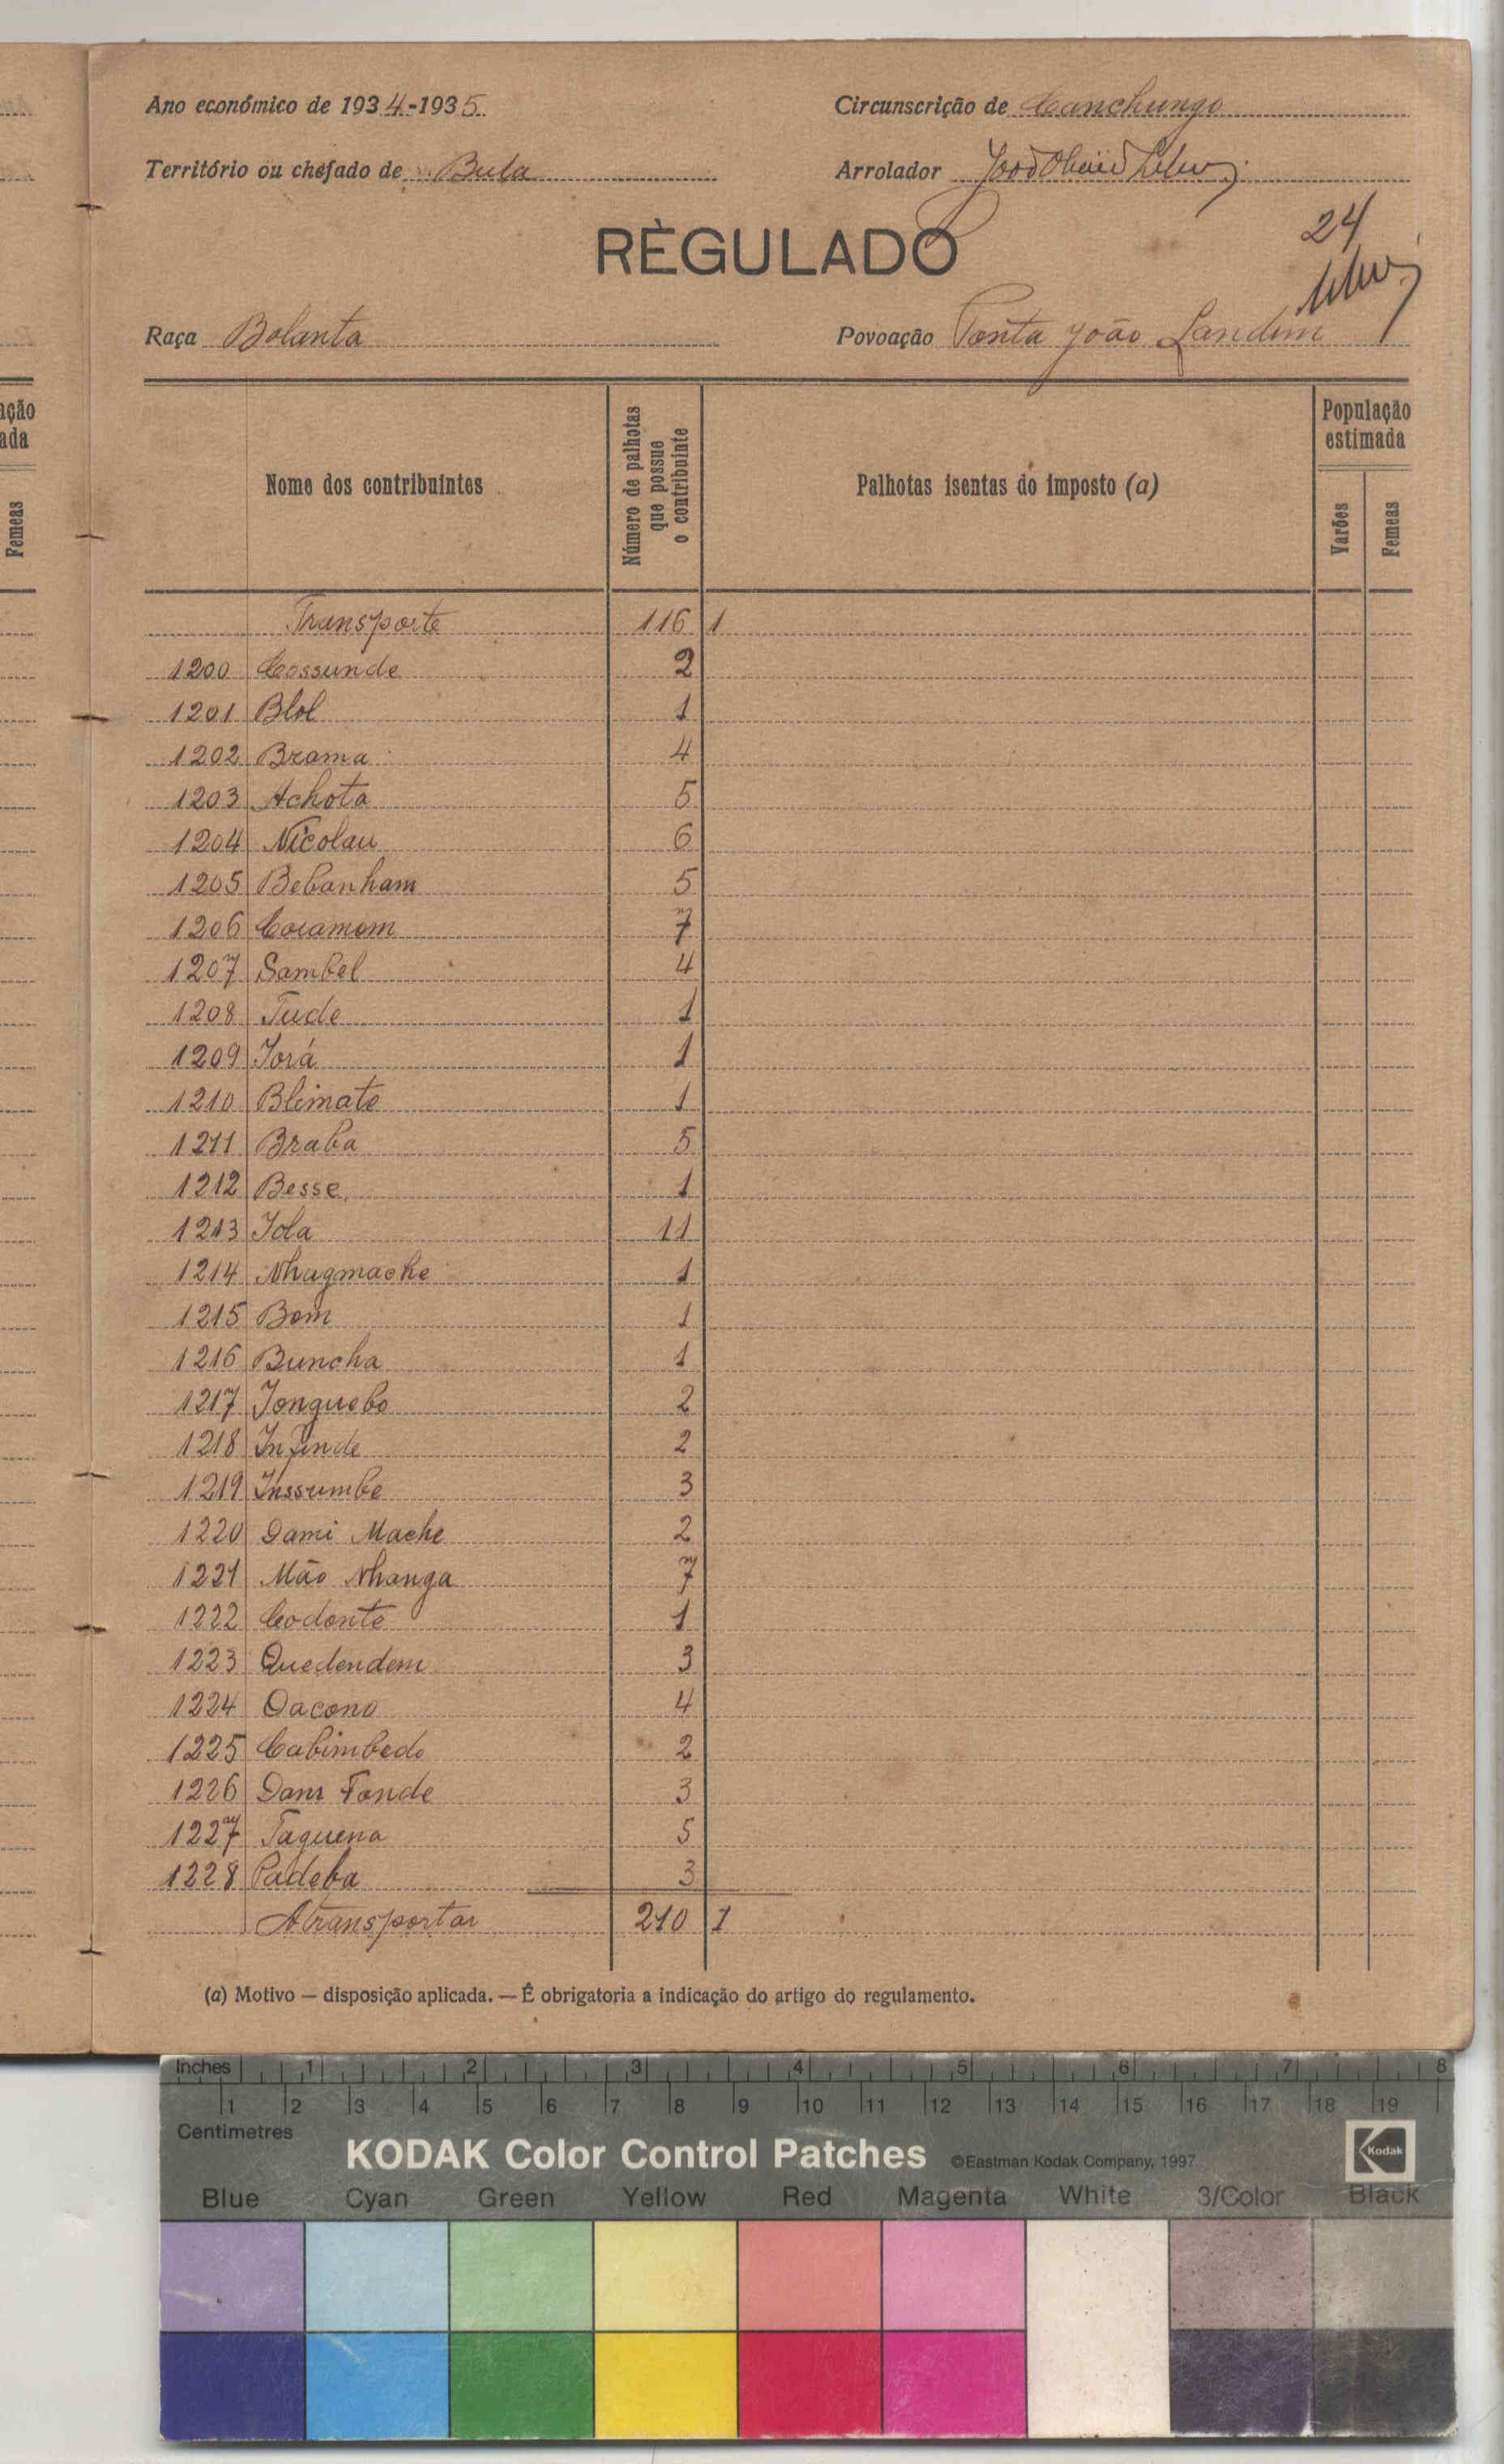 Ano económico de 1934-1935
Circunscrição de Canchungo
Território ou chefado de Bula
Arrolador
RÈGULADO
24
Raça Bolanta
Povoação Ponta João Landim
Nome dos contribuintes
Número de palhotas que possue o contribuinte
Palhotas isentas do imposto (a)
População estimada
Varões
Femeas
ação
ada
Femeas
Transporte 116 1
1200 Cossunde 2
1201 Blol 1
1202 Brama 4
1203 Achota 5
1204 Nicolau 6
1205 Bebanham 5
1206 Coramom 7
1207 Sambel 4
1208 Tude 1
1209 Iorá 1
1210 Blimate 1
1211 Braba 5
1212 Besse 1
1213 Iola 11
1214 Nhagmache 1
1215 Bom 1
1216 Buncha 1
1217 Jonguebo 2
1218 Infinde 2
1219 Inssumbe 3
1220 Dami Mache 2
1221 Mão Nhanga 7
1222 Codonte 1
1223 Quedendem 3
1224 Dacono 4
1225 Cabimbedo 2
1226 Dam Fonde 3
1227 Taguena 5
1228 Padeba 3
A transportar 210 1
(a) Motivo — disposição aplicada. — É obrigatoria a indicação do artigo do regulamento.
Inches 1 2 3 4 5 6 7 8
1 2 3 4 5 6 7 8 9 10 11 12 13 14 15 16 17 18 19
Centimetres
KODAK Color Control Patches ©Eastman Kodak Company, 1997 Kodak
Blue Cyan Green Yellow Red Magenta White 3/Color Black